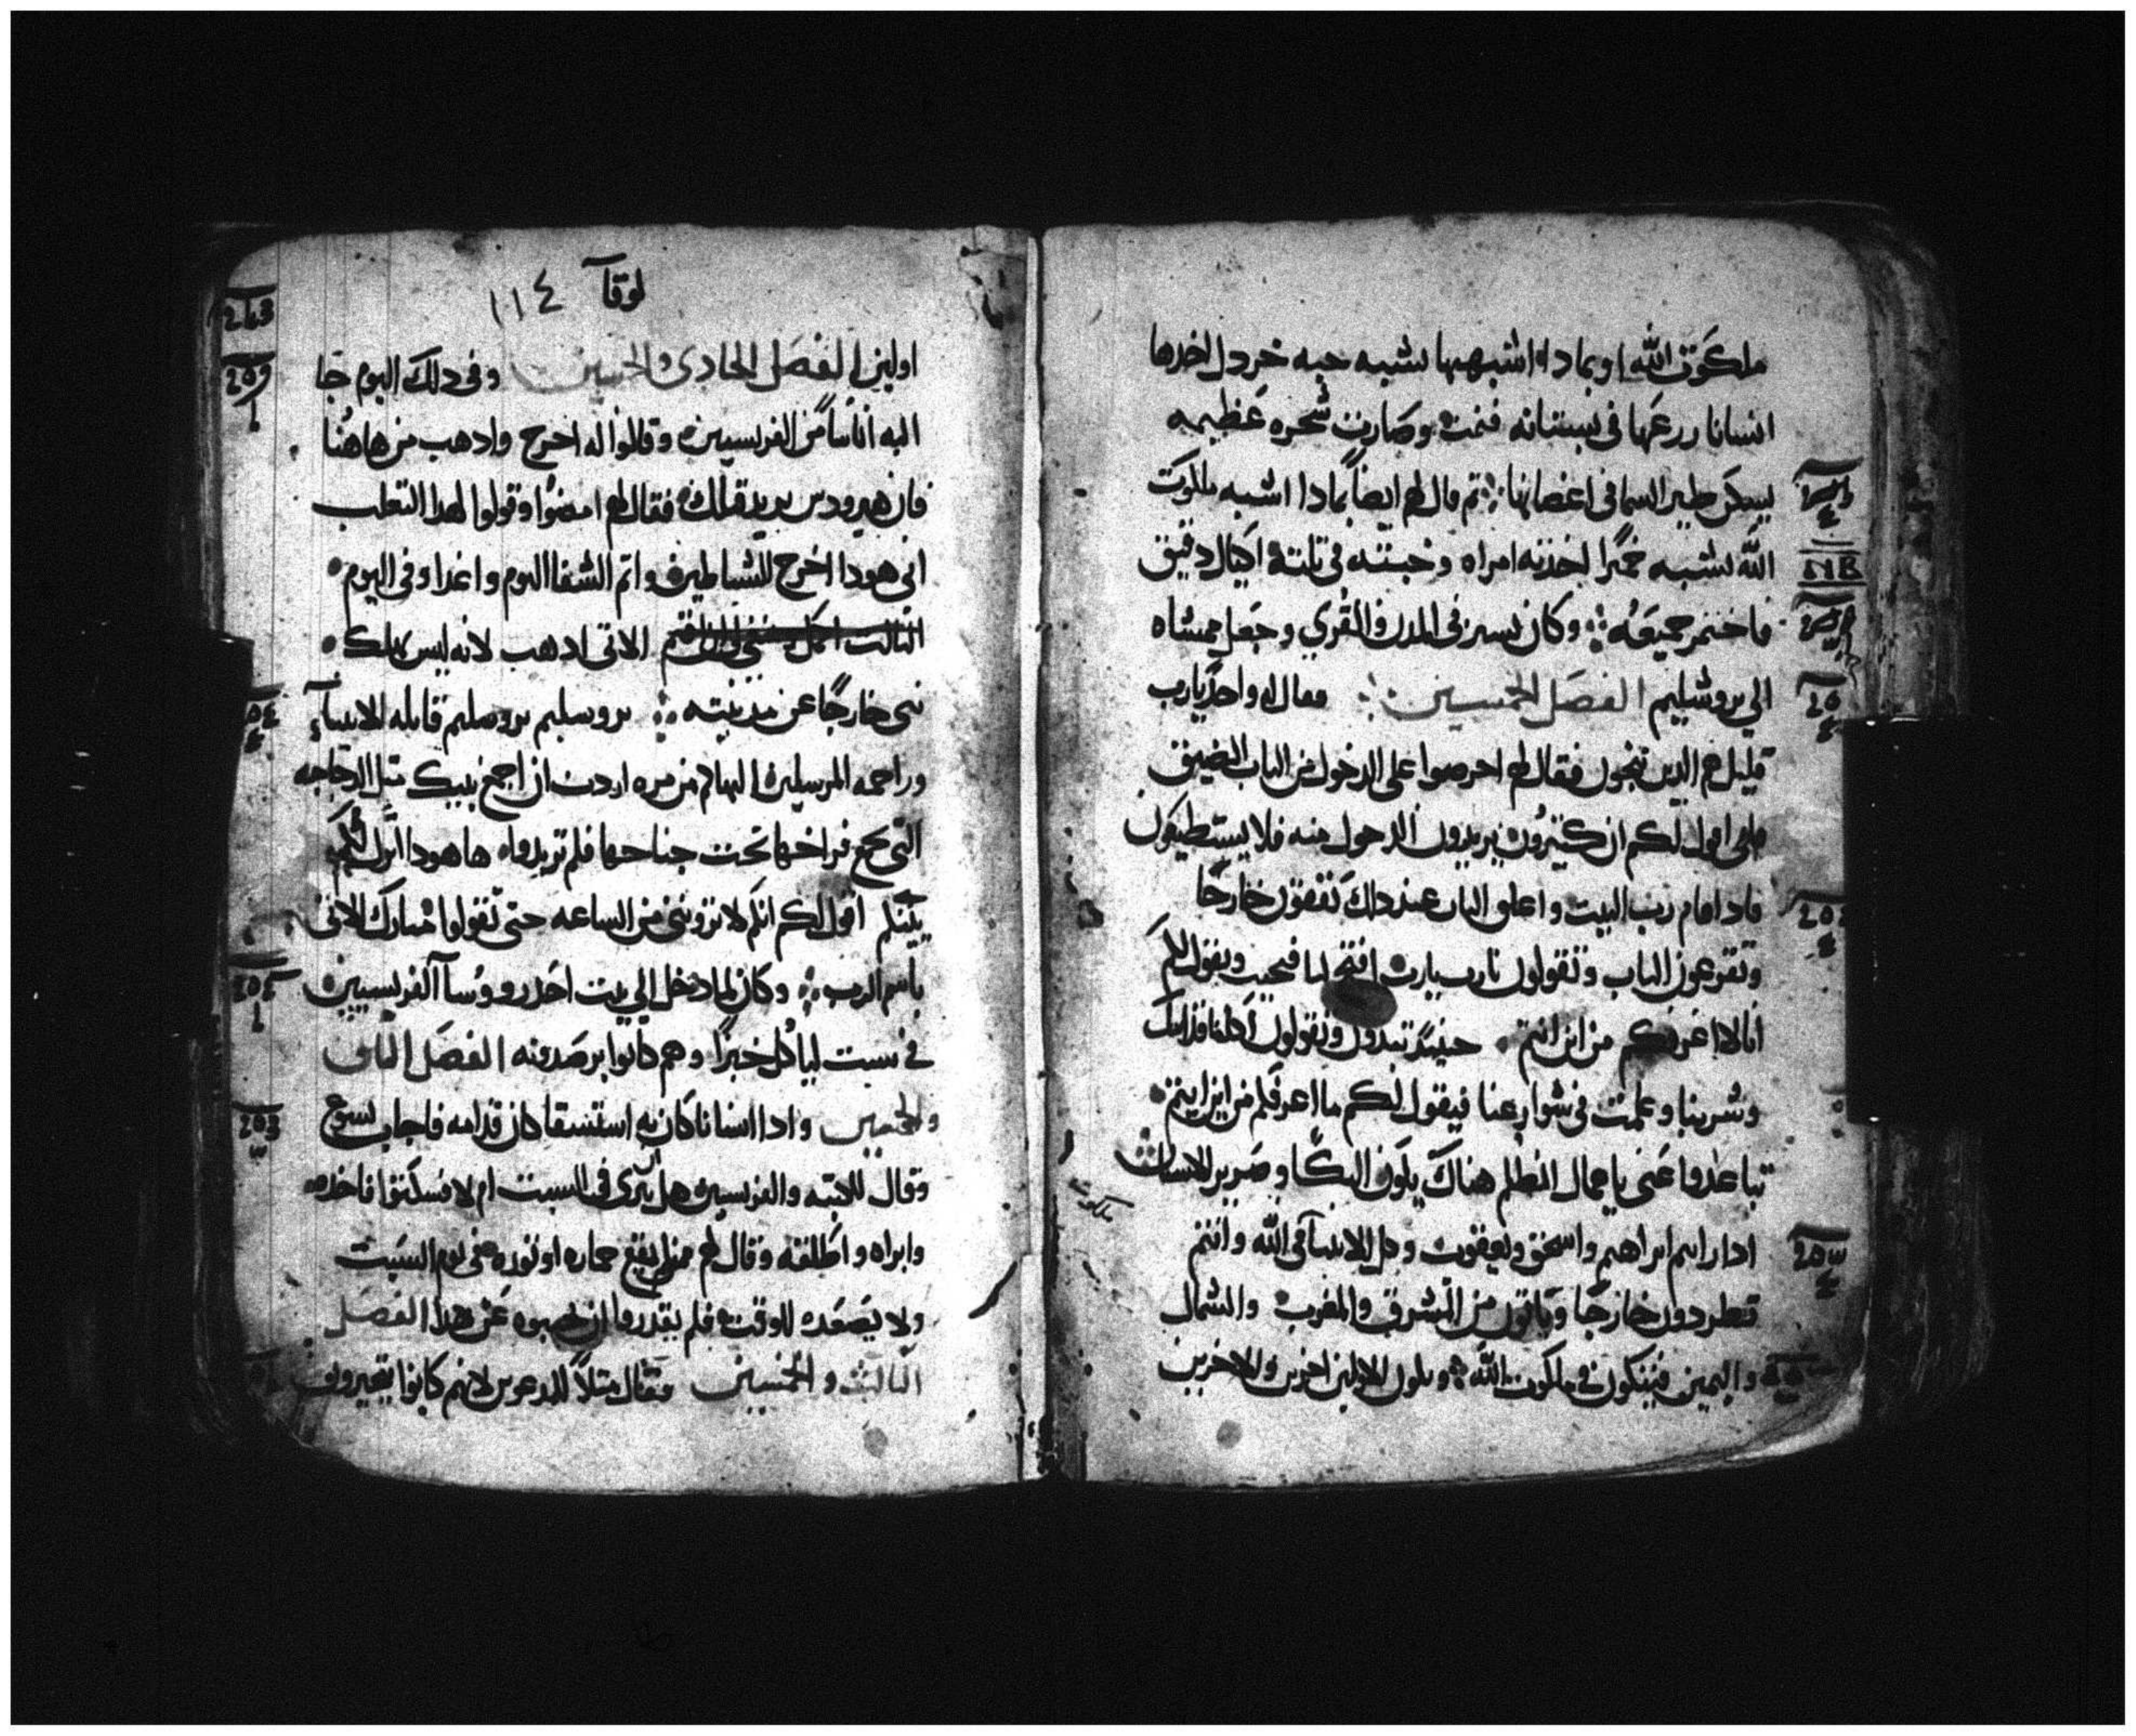 ملكوت الله او بماذا اشبهها تشبه حبه خردل اخدها
انسانا زرعها فى بستانه فنمت وصارت شجره عظيمه
ليسكن طير السما فى اغصانها ثم قال لهم ايضاً بماذا اشبه ملكوت
الله تشبه خميرًا اخذته امراه وخبته فى تلته اكيال دقيق
فاختمر جميعه وكان يسير فى المدن والقرى وجعل ممشاه
الي يروشليم الفصل الخمسين فقال له واحدٌ يارب
قليل هم الدين ينجون فقال لهم احرصوا على الدخول من الباب الضيق
فانى اقول لكم ان كثيرون يريدون الدخول منه فلا يستطيعون
فادا قام رب البيت واغلق الباب عند داك تقفون خارجًا
وتقرعون الباب وتقولون يارب يارب افتح لنا فيجيب ويقول لكم
انا لا اعرفكم من اين انتم حينيد تبدون وتقولون اكلنا قدامك
وشربنا وعلمت فى شوارعنا فيقول لكم ما اعرفكم من اين انتم
تباعدوا عنى ياعمال الظلم هناك يكون البكا وصرير الاسنان
ملكوت
ادا رايتم ابراهيم واسحق ويعقوب وكل الانبيا فى الله وانتم
تطردون خارجًا وياتون من المشرق والمغرب والشمال
واليمين فيتكون فى ملكوت الله ويكون الاولين اخرين والاخرين
لوقا ١١٤
اولين الفصل الحادى والخمسين وفى دلك اليوم جا
اليه اناسًا من الفريسيين وقالوا له اخرج وادهب من هاهنا
فان هيرودس يريد قتلك فقال لهم امضوا وقولوا لهدا التعلب
انى هودا اخرج الشياطين واتم الشفا اليوم وغدا وفى اليوم
التالت اكمل الاتى ادهب لانه ليس يهلك
نبى خارجًا عن مدينته يروسليم يروسليم قاتله الانبيآء
وراجمه المرسلين اليها كم من مره اردت ان اجمع بنيك متل الدجاجه
التى تجمع فراخها تحت جناحها فلم تريدوا هاهودا اترك لكم
بيتكم اقول لكم انكم لا ترونى من الساعه حتى تقولوا مبارك الاتى
باسم الرب وكان لما دخل الي بيت احد روسآ الفريسيين
فى سبت لياكل خبزًا وهم كانوا يرصدونه الفصل التانى
والخمسين وادا انسانا كان به استسقا كان قدامه فاجاب يسوع
وقال للكتبه والفريسين هل يبرى فى السبت ام لا فسكتوا فاخده
وابراه واطلقه وقال لهم من منكم يقع حماره او توره فى يوم السبت
ولا يصعده للوقت فلم يقدروا ان يجيبوه عن هدا الفصل
التالث والخمسين فقال متلاً للمدعوين لانهم كانوا يتخيرون